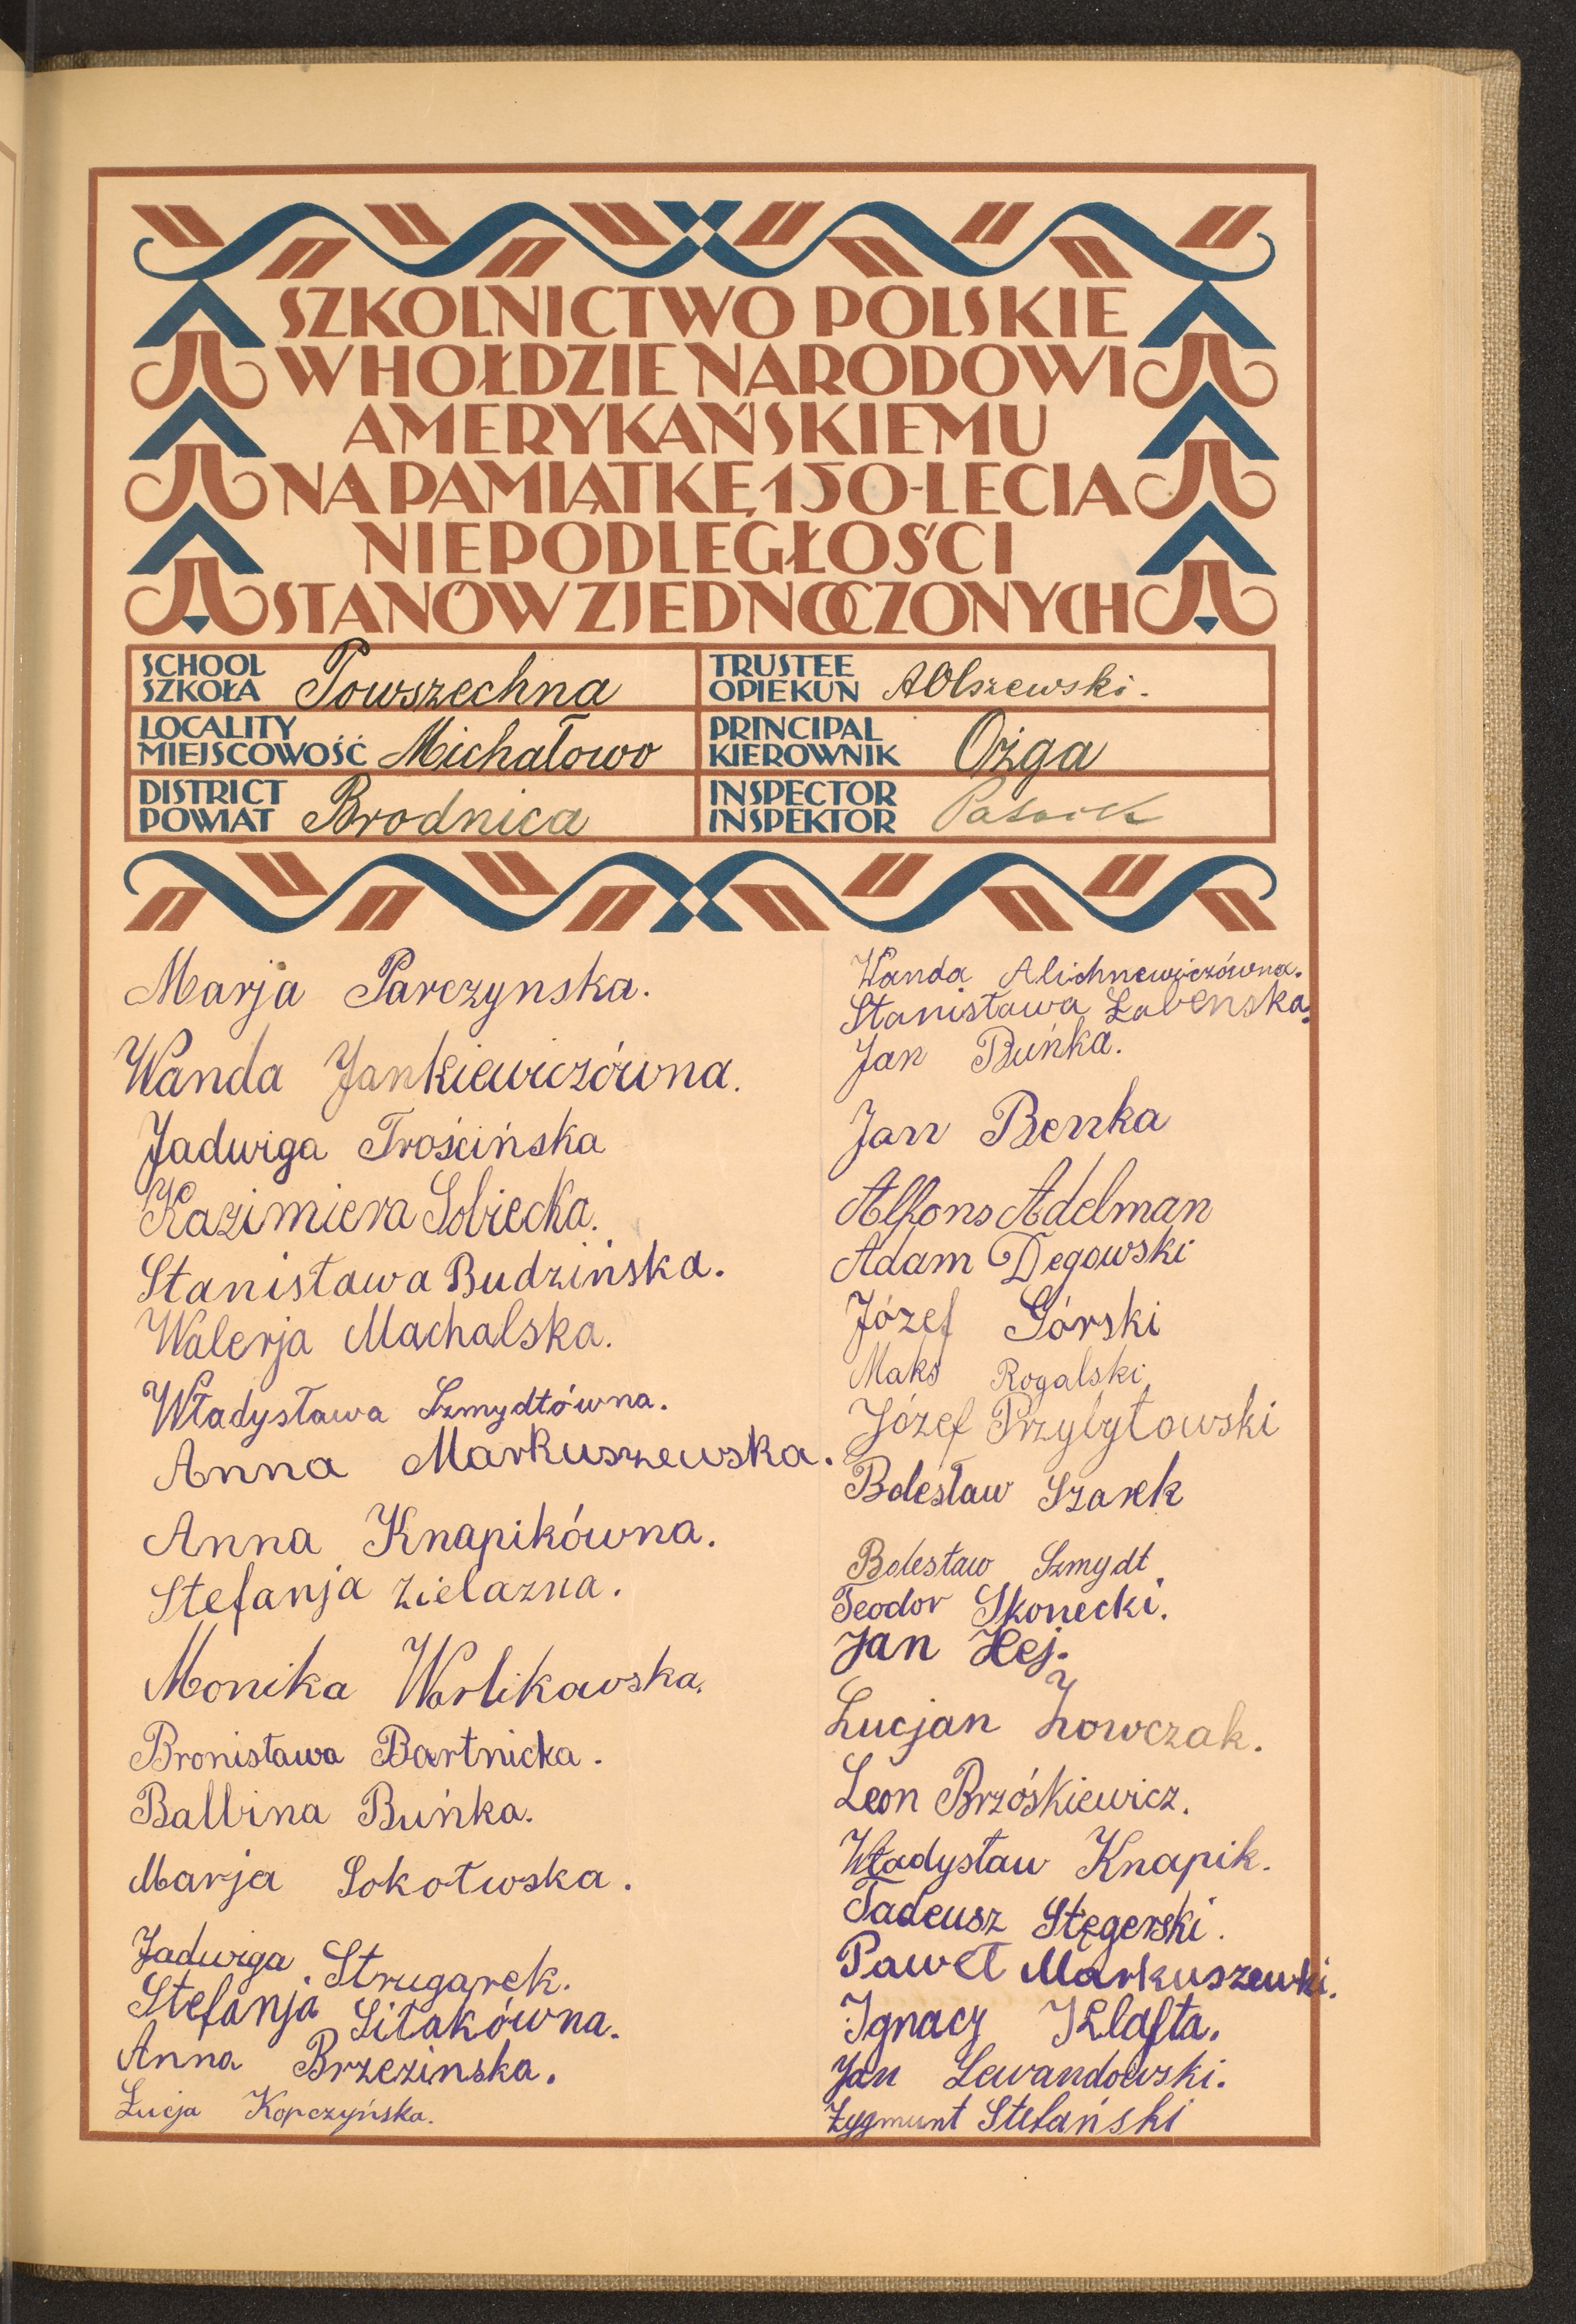 SZKOLNICTWO POLSKIE
W HOŁDZIE NARODOWI
AMERYKAŃSKIEMU
NA PAMIĄTKĘ 150-LECIA
NIEPODLEGŁOŚCI
STANÓW ZJEDNOCZONYCH
SCHOOL
SZKOŁA Powszechna
TRUSTEE
OPIEKUN A Olszewski.
LOCALITY
MIEJSCOWOŚĆ Michałowo
PRINCIPAL
KIEROWNIK Ożga
DISTRICT
POWIAT Brodnica
INSPECTOR
INSPEKTOR
Marja Parczynska.
Wanda Jankiewiczówna.
Jadwiga Trościńska
Kazimiera Sobiecka.
Stanisława Budzińska.
Walerja Machalska.
Władysława Szmydtówna.
Anna Markuszewska.
Anna Knapikówna.
Stefanja Zielazna.
Monika Warlikowska.
Bronisława Bartnicka.
Balbina Buńka.
Marja Sokołwska.
Jadwiga Strugarek.
Stefanja Sitakówna.
Anna Brzezinska.
Łucja Kopczyńska.
Wanda Alichnewiczówna.
Stanisława Łabenska.
Jan Buńka.
Jan Benka
Alfons Adelman
Adam Degowski
Józef Górski
Maks Rogalski
Józef Przybytowski
Bolesław Szarek
Bolesław Szmydt
Teodor Skonecki.
Jan Hej.
Lucjan Żowczak.
Leon Brzóskiewicz.
Władysław Knapik.
Tadeusz Stęgerski.
Paweł Markuszewki.
Ignacy Klafta.
Jan Lewandowski.
Zygmunt Stefański